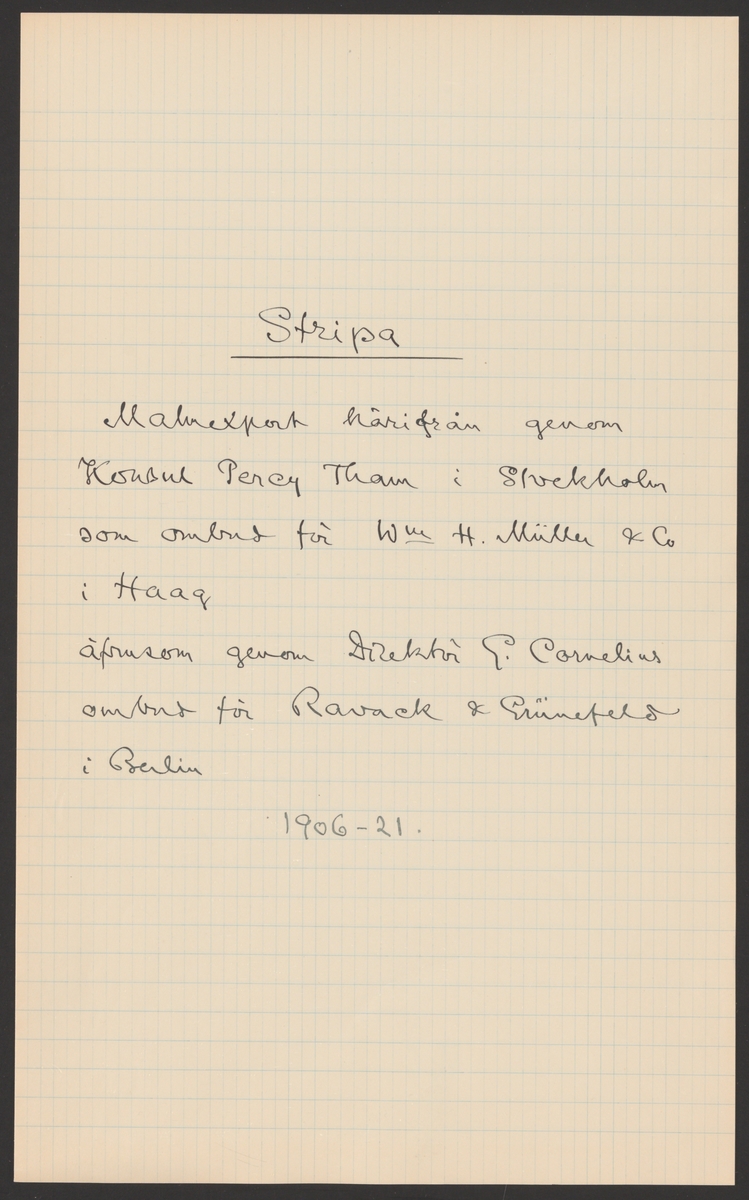 Stripa
Malmexport härifrån genom
Konsul Percy Tham i Stockholm
som ombud för Wm H. Müller & Co
i Haag
äfvensom genom Direktör G. Cornelius
ombud för Ravack & Grünefeld
i Berlin
1906-21.